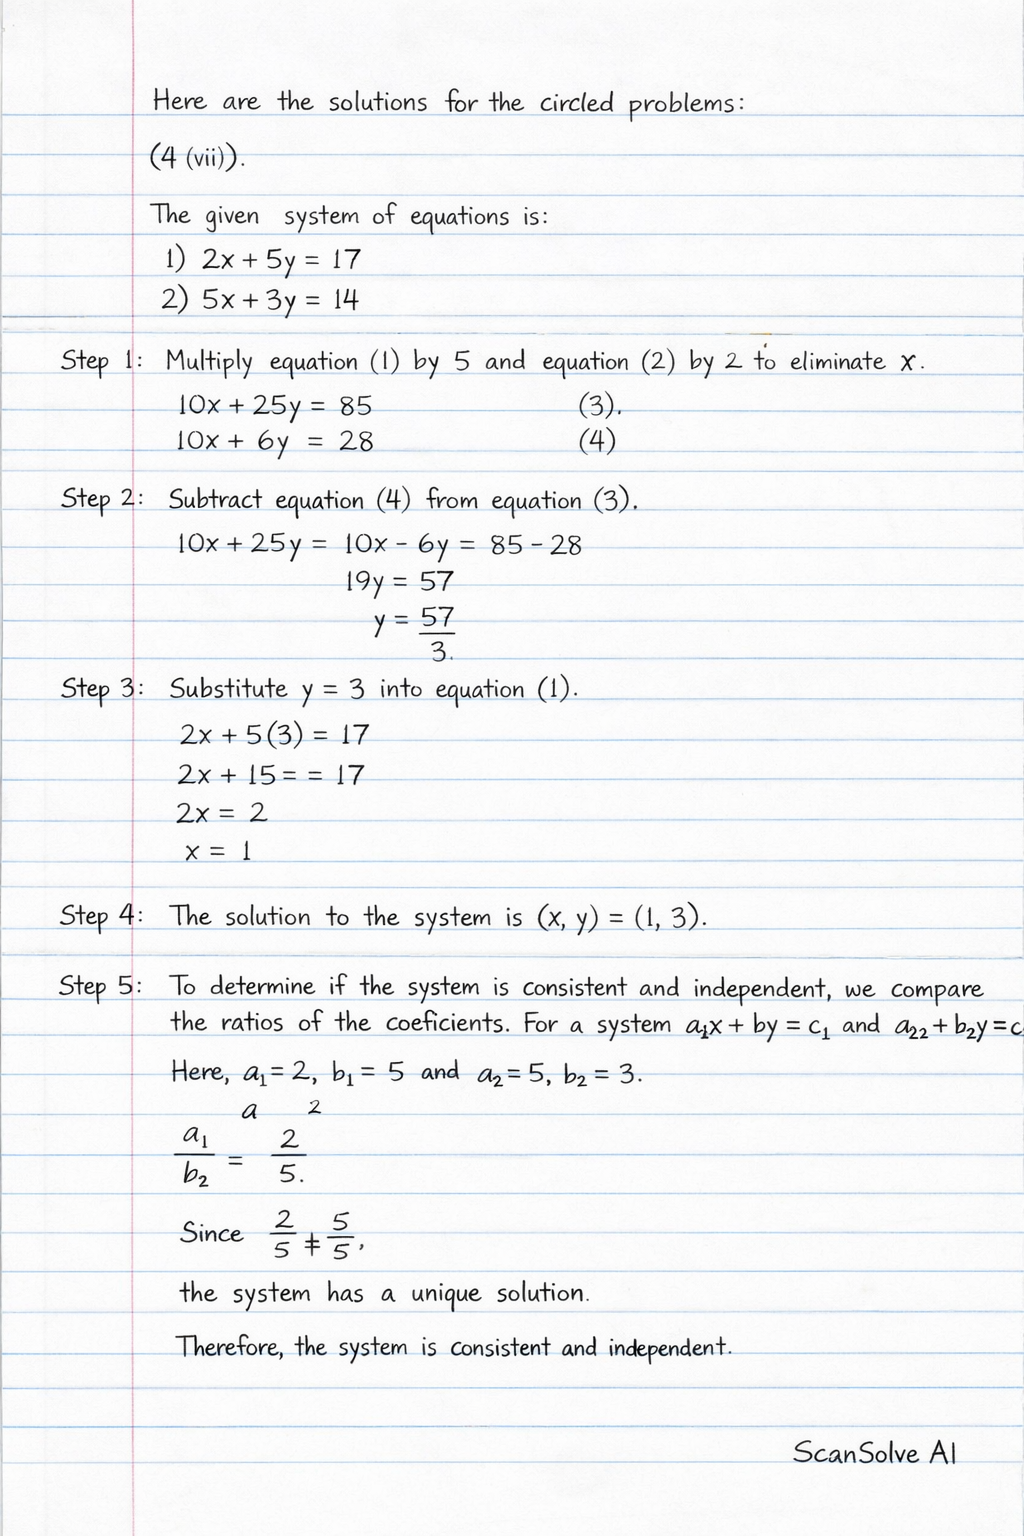 Here are the solutions for the circled problems:
(4 (vii)).
The given system of equations is:
1) 2x + 5y = 17
2) 5x + 3y = 14
Step 1: Multiply equation (1) by 5 and equation (2) by 2 to eliminate x.
10x + 25y = 85 (3).
10x + 6y = 28 (4)
Step 2: Subtract equation (4) from equation (3).
10x + 25y = 10x - 6y = 85 - 28
19y = 57
y = 57
3.
Step 3: Substitute y = 3 into equation (1).
2x + 5(3) = 17
2x + 15 = = 17
2x = 2
x = 1
Step 4: The solution to the system is (x, y) = (1, 3).
Step 5: To determine if the system is consistent and independent, we compare
the ratios of the coeficients. For a system a₁x + by = c₁ and a₂₂ + b₂y = c
Here, a₁ = 2, b₁ = 5 and a₂ = 5, b₂ = 3.
a 2
a₁ 2
=
b₂ 5.
Since 2/5 ≠ 5/5,
the system has a unique solution.
Therefore, the system is consistent and independent.
ScanSolve AI